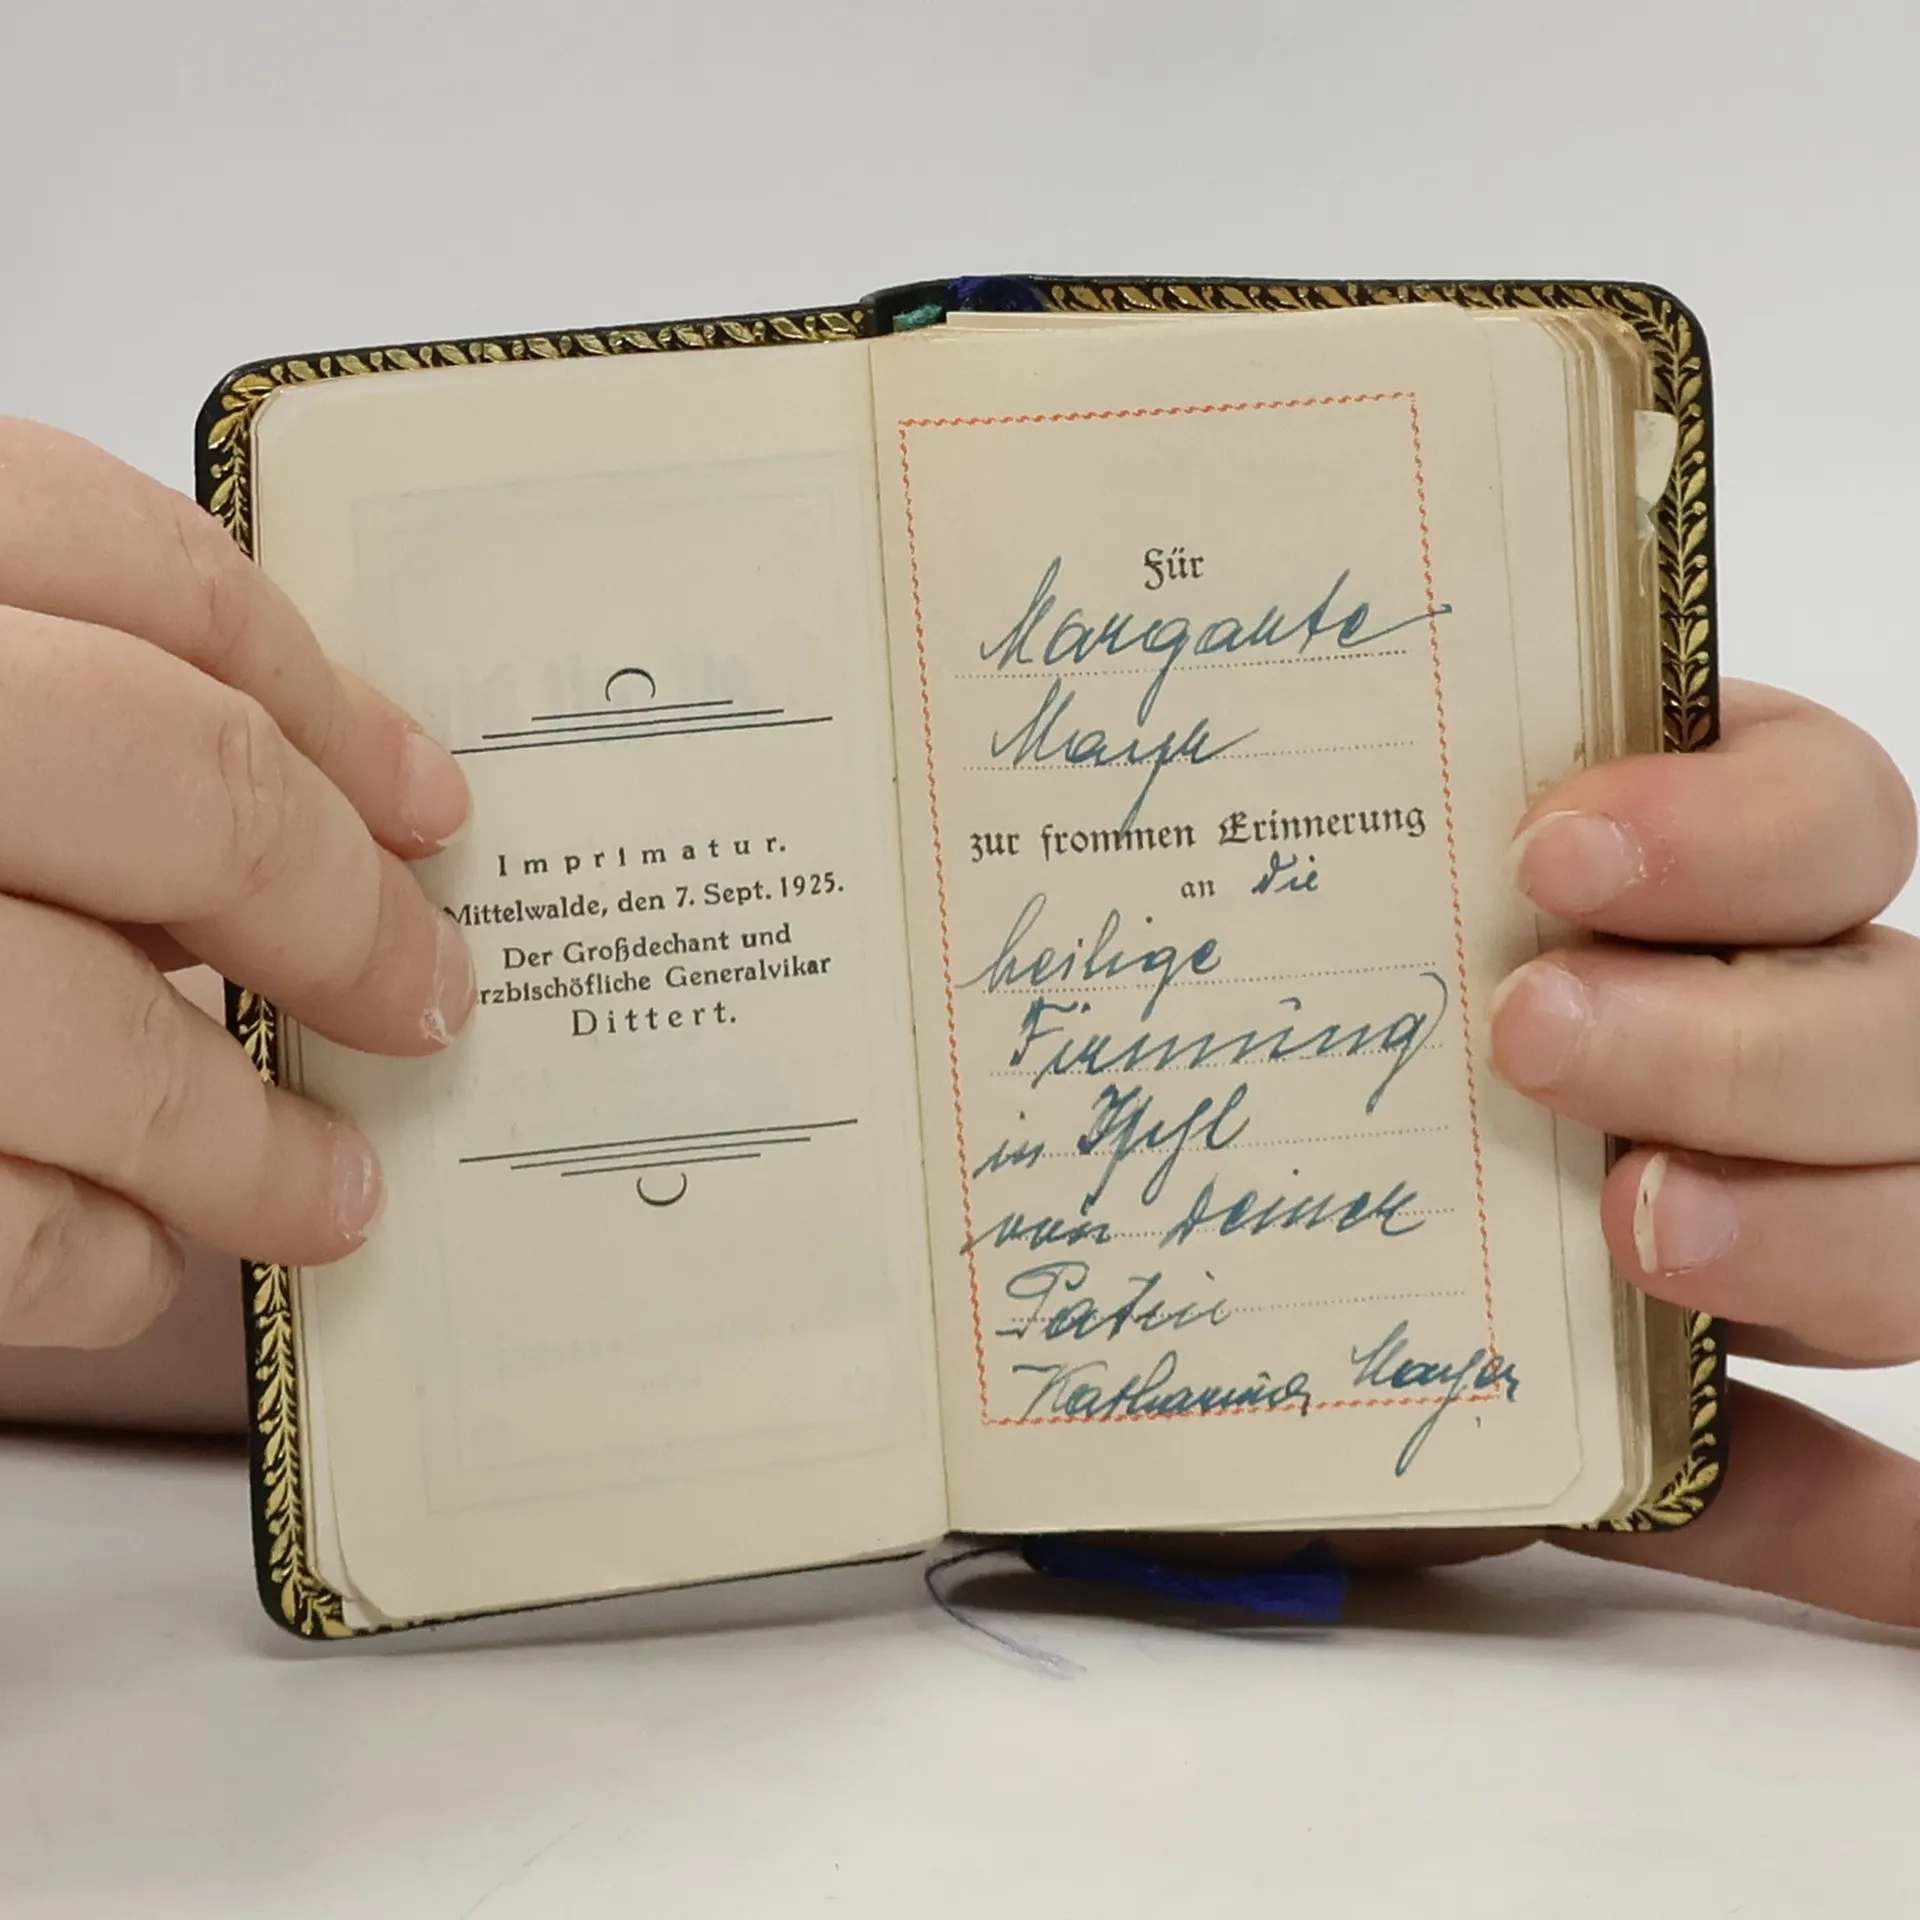 Imprimatur.
Mittelwalde, den 7. Sept. 1925.
Der Großdechant und
rzbischöfliche Generalvikar
Dittert.
Für
zur frommen Erinnerung
an die
heilige
Firmung
in
von Deiner
Patin
Katharina Mayer
1